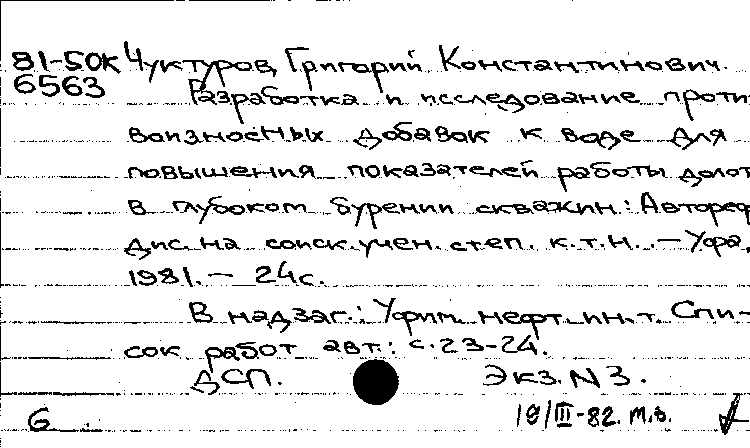 81-50К Чуктуров, Григорий Константинович.
6563 Разработка и исследование проти-
воизносных добавок к воде для
повышения показателей работы долот
в глубоком бурении скважин: Автореф.
дис. на соиск. учен. степ. к.т.н. – Уфа,
1981. – 24с.
В надзаг.: Уфим. нефт. ин-т. Спи-
сок работ авт.: с. 23-24.
ДСП. Экз. N 3.
6 19/III-82. м.в.